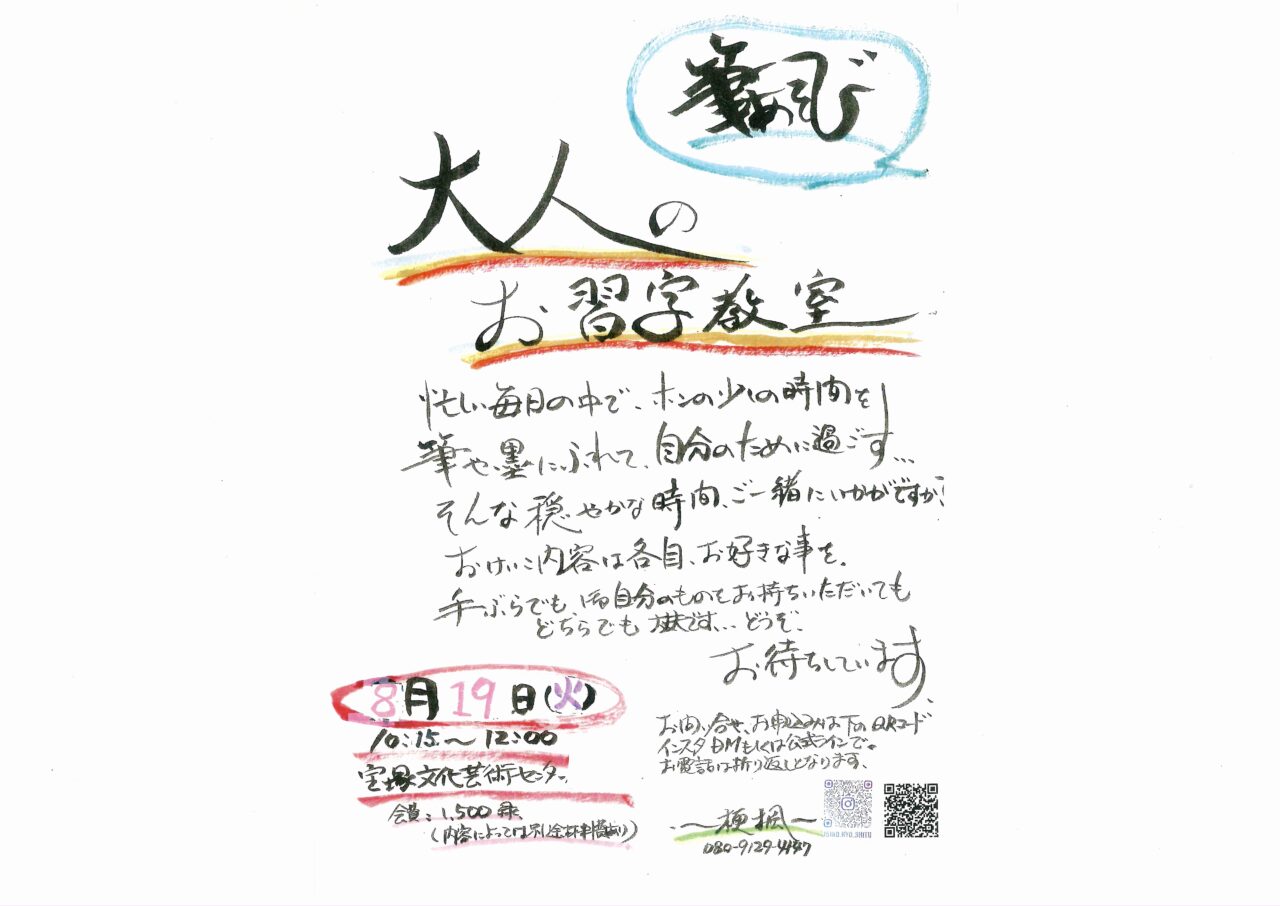 筆あそび
大人の
お習字教室
忙しい毎日の中で、ホンの少しの時間を
筆や墨にふれて、自分のために過ごす...
そんな穏やかな時間、ご一緒にいかがですか?
おけいこ内容は各自、お好きな事を。
手ぶらでも、ご自分のものをお持ちいただいても
どちらでも大丈夫です...どうぞ、
お待ちしています、
8月19日(火)
10:15〜12:00
宝塚文化芸術センター
会費:1,500円
(内容によっては別途材料費あり)
お問い合せ、お申込みは下のQRコード
インスタDMもしくは公式ラインで。
お電話は折り返しとなります、
〜梗楓〜
080-9129-4147